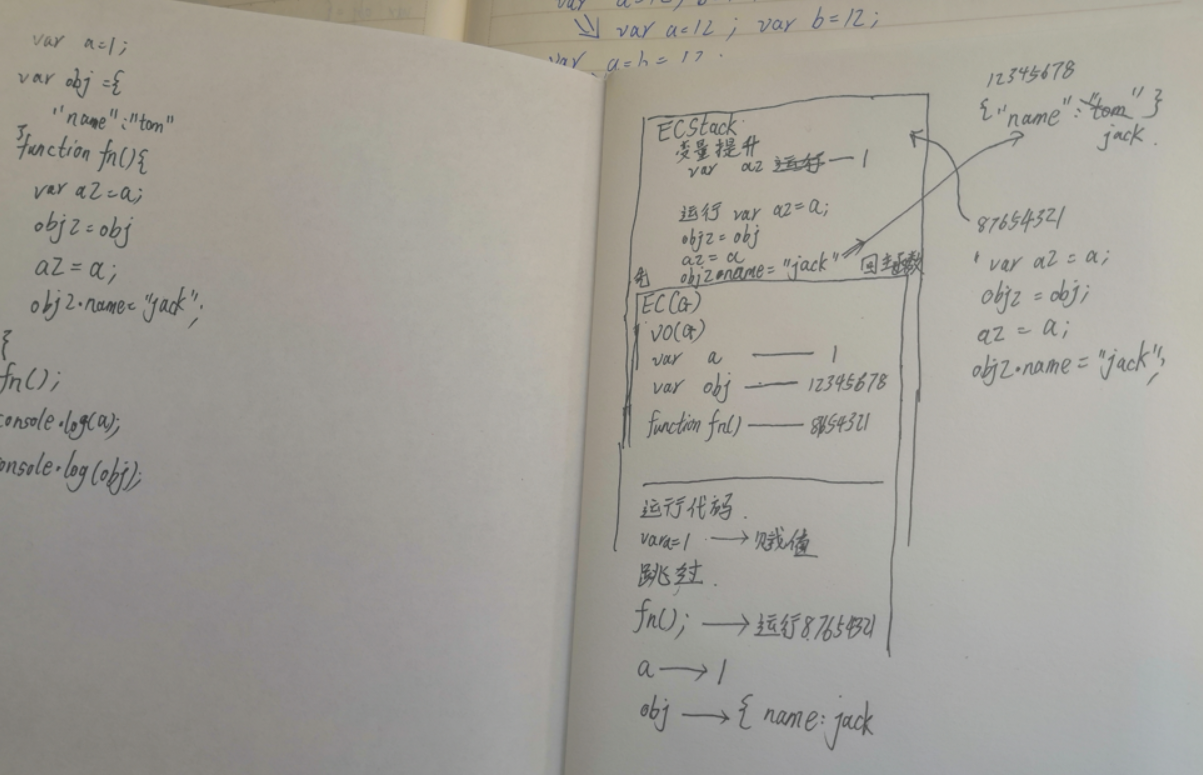 var a=12 ; var b=12;
var a=b=12.
var a=1;
var obj ={
"name":"tom"
}
function fn(){
var a2=a;
obj2=obj
a2=a;
obj2.name="jack";
{
fn();
console.log(a);
console.log(obj);
ECStack
变量提升
var a2 运行 — 1
运行 var a2=a;
obj2=obj
a2=a
obj2.name="jack"
回主函数
EC(G)
VO(G)
var a — 1
var obj — 12345678
function fn() — 8654321
运行代码.
var a=1 → 赋值
跳过.
fn(); → 运行87654321
a → 1
obj → { name: jack
12345678
{"name":"tom"}
jack.
87654321
var a2 = a;
obj2 = obj;
a2 = a;
obj2.name = "jack";